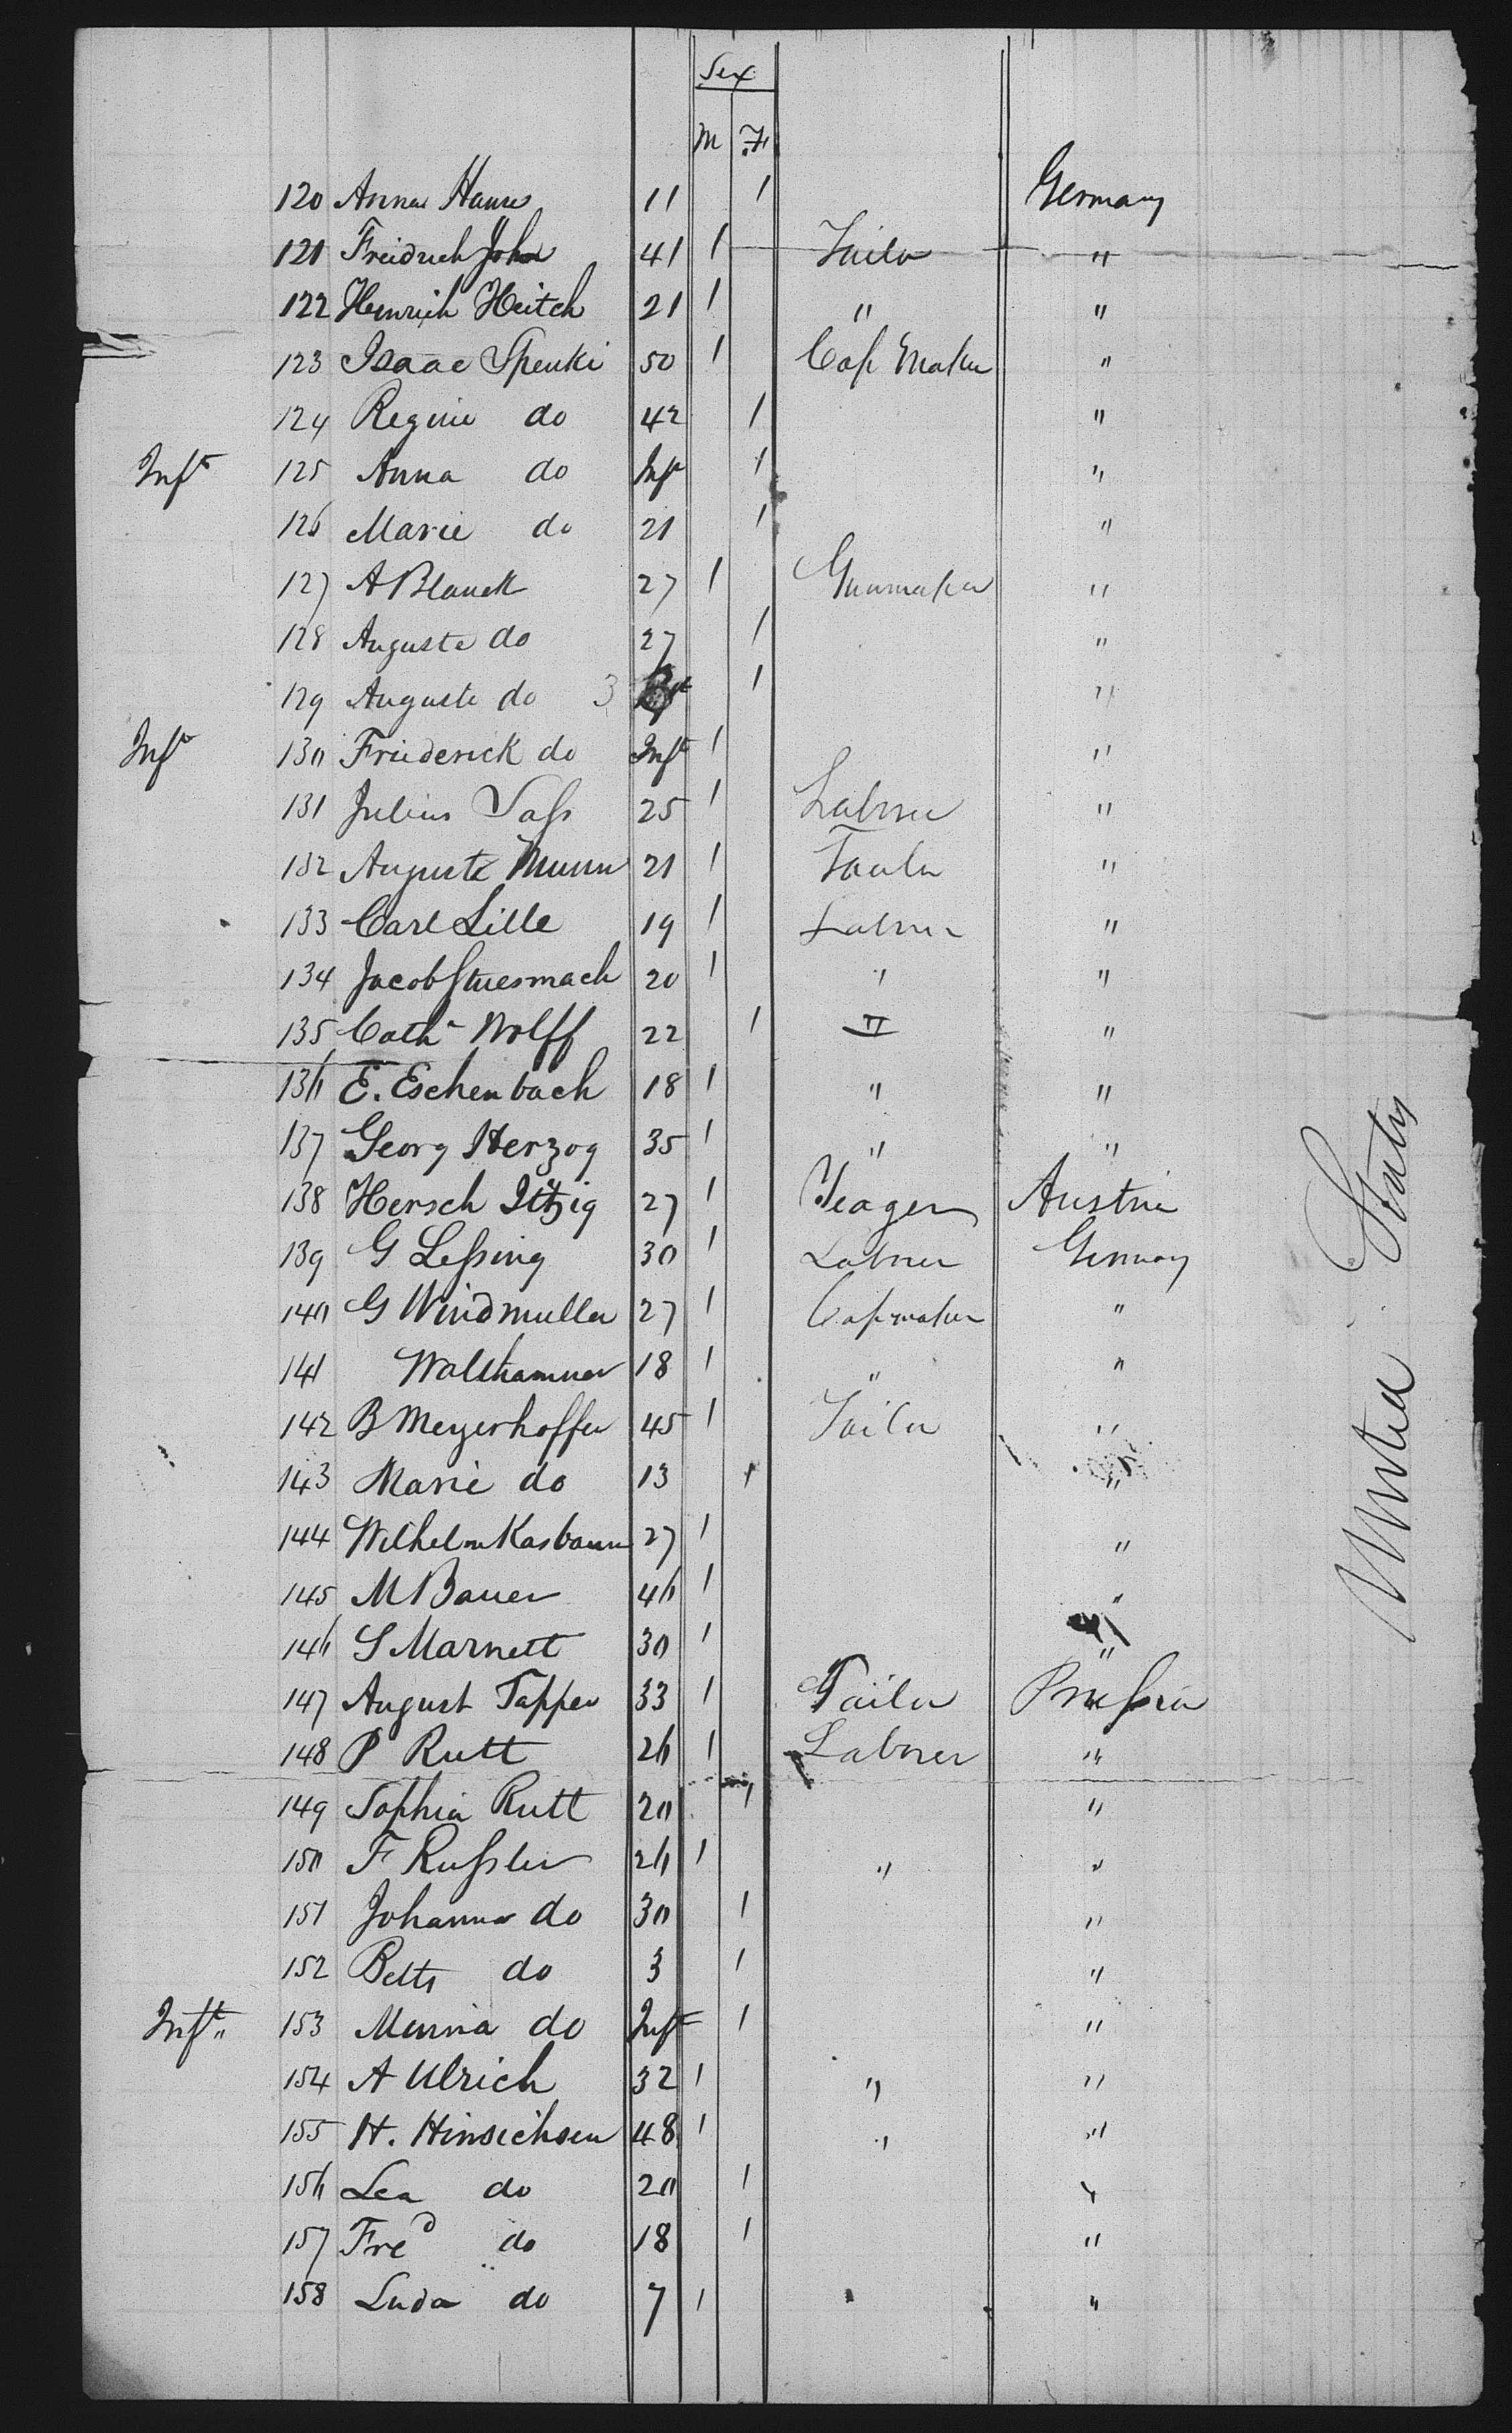 Sex
M F
120 Anna Hanse 11 1 Germany
121 Freidrich John 41 1 Tailor "
122 Heinrich Heitch 21 1 " "
123 Isaac Spenki 50 1 Cap Maker "
124 Regine do 42 1 "
Inft 125 Anna do Inft 1 "
126 Marie do 21 1 "
127 A Blauck 27 1 Gunmaker "
128 Auguste do 27 1 "
129 Auguste do 3 1 "
Inft 130 Friederick do Inft 1 "
131 Julius Sass 25 1 Labrer "
132 Auguste Munn 21 1 Tailor "
133 Carl Lille 19 1 Labrer "
134 Jacob 20 1 " "
135 Cath Wolff 22 1 " "
136 E. Eschenbach 18 1 " "
137 Georg Herzog 35 1 " "
138 Hersch Itzig 27 1 Yeager Austria
139 G Lessing 30 1 Labrer Germany
140 G Windmuller 27 1 Capmaker "
141 Walthammer 18 1 " "
142 B Meyerhoffer 45 1 Tailor "
143 Marie do 13 1 "
144 Wilhelm Kasbaum 27 1 "
145 M Bauer 46 1 "
146 S Marnett 30 1 "
147 August Tapper 33 1 Tailor Prussia
148 P Rutt 26 1 Labrer "
149 Sophia Rutt 20 1 "
150 F Russler 26 1 " "
151 Johanna do 30 1 "
152 Betts do 3 1 "
Inft " 153 Minna do Inft 1 "
154 A Ulrich 32 1 " "
155 H. Hinsichsen 48 1 " "
156 Lea do 20 1 "
157 Fred do 18 1 "
158 Luda do 7 1 "
United States